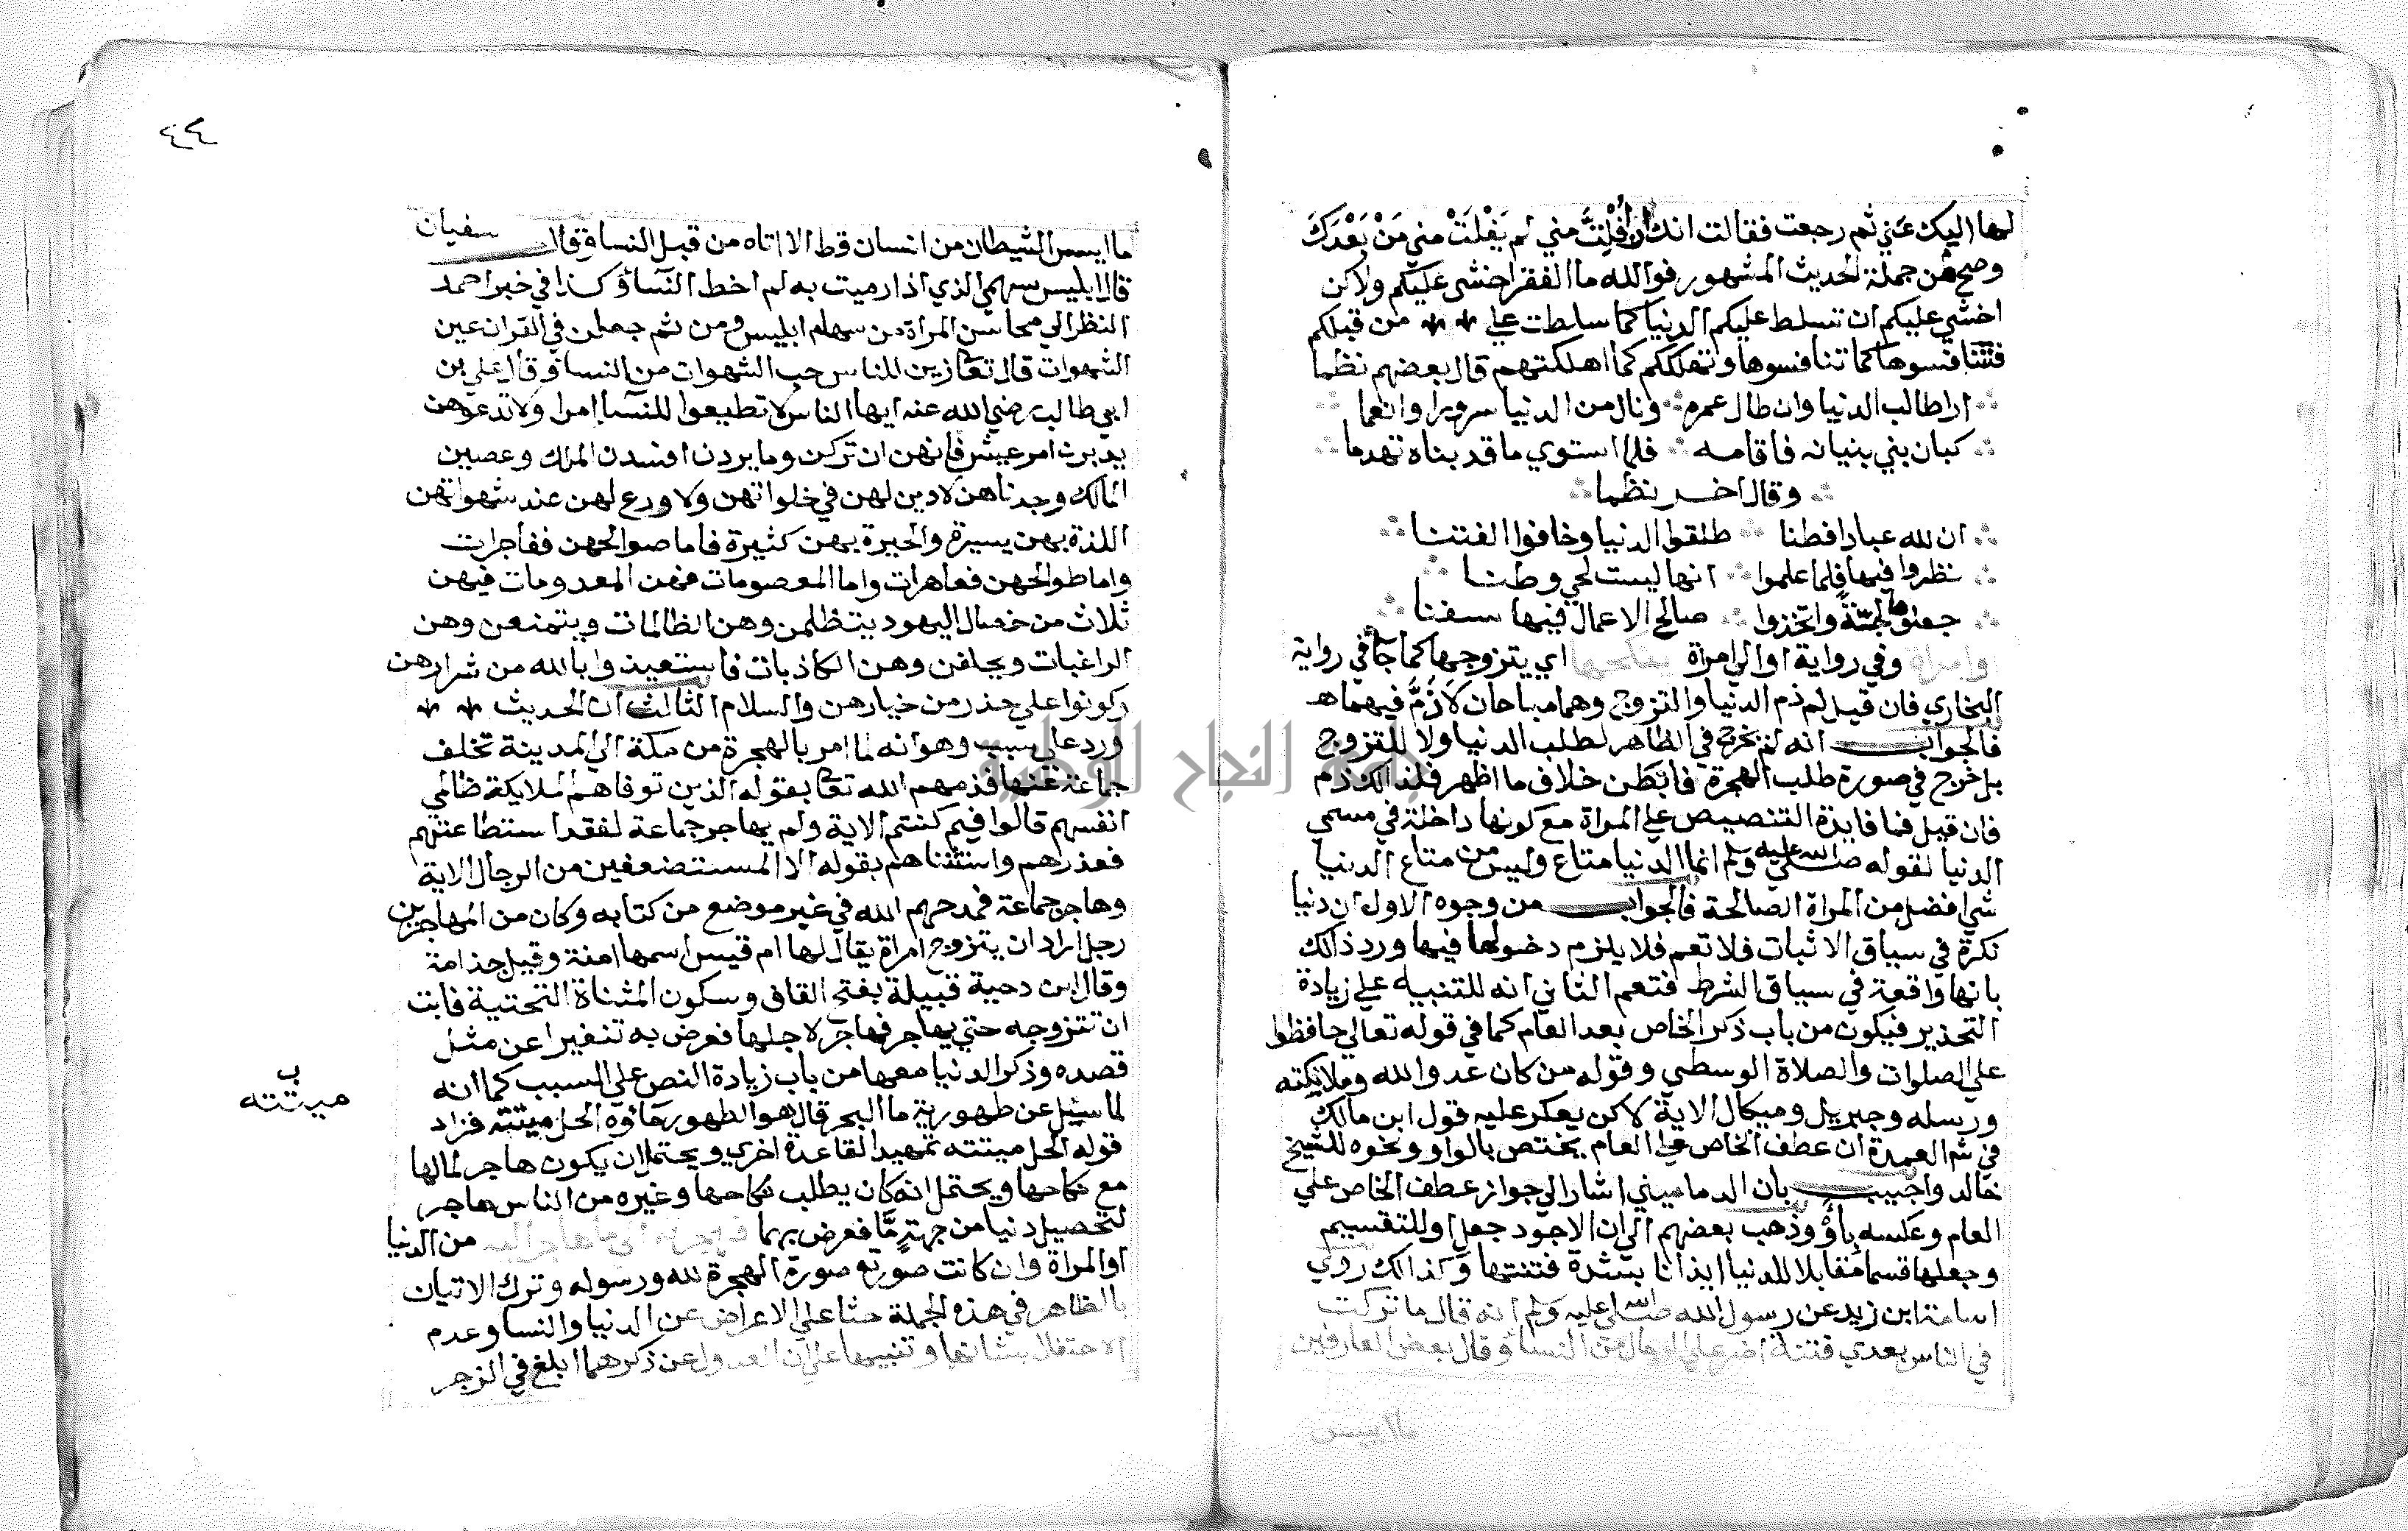 لها اليك عني ثم رجعت فقالت انك ان أفلتَّ مني لم يَفْلَتْ مني مَنْ بَعْدَكَ
وصح من جملة الحديث المشهور فوالله ما الفقر اخشى عليكم ولاكن
اخشى عليكم ان تبسط عليكم الدنيا كما سلطت على من قبلكم
فتنافسوها كما تنافسوها وتهلككم كما اهلكتهم قال بعضهم نظما
ارا طالب الدنيا وان طال عمره ونال من الدنيا سرورا وانعما
كبان بني بنيانه فاقامه فلما استوي ما قد بناه تهدما
وقال اخر نظما
ان لله عبادا فطنا طلقوا الدنيا وخافوا الفتنا
نظروا فيها فلما علموا انها ليست لحي وطنا
جعلوها لجة واتخذوا صالح الاعمال فيها سفنا
وامراة وفي رواية او الي امراة ينكحها اي يتزوجها كما جآ في رواية
البخاري فان قيل لم ذم الدنيا والتزوج وهما مباحان لا ذمَّ فيهما هـ
فالجواب انه لم يخرج في الظاهر لطلب الدنيا ولا للتزوج
بل خرج في صورة طلب الهجرة فابطن خلاف ما اظهر فلذالك ذم
فان قيل فما فايدة التنصيص علي المراة مع كونها داخلة في مسمي
الدنيا لقوله صلي الله عليه وسلم انما الدنيا متاع وليس من متاع الدنيا
شي افضل من المراة الصالحة فالجواب من وجوه الاول ان دنيا
نكرة في سياق الاثبات فلا تعم فلا يلزم دخولها فيها ورد ذالك
بانها واقعة في سياق الشرط فتعم الثاني انه للتنبيه علي زيادة
التحذير فيكون من باب ذكر الخاص بعد العام كما في قوله تعالي حافظوا
علي الصلوات والصلاة الوسطي وقوله من كان عدوا لله وملايكته
ورسله وجبريل وميكال الاية لاكن يعكر عليه قول ابن مالك
في شم العمدة ان عطف الخاص علي العام يختص بالواو ونحوه للشيخ
خالد واجيب بان الدماميني اشار الي جواز عطف الخاص علي
العام وعكسه بأوْ وذهب بعضهم الي ان الاجود جعل او للتقسيم
وجعلها قسما مقابلا للدنيا ايذانا بشدة فتنتها وكذالك روي
اسامة ابن زيد عن رسول الله صلي الله عليه وسلم انه قال ما تركت
في الناس بعدي فتنة اضر علي الرجال من النسآ وقال بعض العارفين
ما ايس
ما ايس الشيطان من انسان قط الا اتاه من قبل النسا وقال سفيان
قال ابليس سهمي الذي اذا رميت به لم اخط النسآ وكذا في خبر احمد
النظر الي محاسن المراة من سهام ابليس ومن ثم جعلن في القران عين
الشهوات قال تعا زين للناس حب الشهوات من النسا وقال علي بن
ابي طالب رضي الله عنه ايها الناس لا تطيعوا للنسآ امرا ولا تدعوهن
يدبرن امر عيش فإنهن ان تركن وما يردن افسدن الملك وعصين
المالك وجدناهن لا دين لهن في خلواتهن ولا ورع لهن عند شهواتهن
اللذة بهن يسيرة والحيرة بهن كثيرة فاما صوالحهن ففاجرات
واما طوالحهن فعاهرات واما المعصومات فهن المعدومات فيهن
ثلاث من خصال اليهود يتظلمن وهن الظالمات ويتمنعن وهن
الراغبات ويحلفن وهن الكاذبات فاستعيذوا بالله من شرارهن
وكونوا علي حذر من خيارهن والسلام الثالث ان الحديث
ورد علي سبب وهو انه لما امر بالهجرة من مكة الي المدينة تخلف
جماعة عنها فذمهم الله تعا بقوله الذين توفاهم الملايكة ظالمي
انفسهم قالوا فيم كنتم الاية ولم يهاجر جماعة لفقد استطاعتهم
فعذرهم واستثناهم بقوله الا المستضعفين من الرجال الاية
وهاجر جماعة فمدحهم الله في غير موضع من كتابه وكان من المهاجرين
رجل اراد ان يتزوج امراة يقال لها ام قيس اسمها امنة وقيل جذامة
وقال ابن دحية قبيلة بفتح القاف وسكون المثناة التحتية فابت
ان تتزوجه حتي يهاجر فهاجر لاجلها فعرض به تنفيرا عن مثل
قصده وذكر الدنيا معها من باب زيادة النص علي السبب كما انه
لما سئيل عن طهورية ما البحر قال هو الطهور ماؤه الحل ميتته فزاد
ب
ميتته
قوله الحل ميتته تمهيدا لقاعدة اخري ويحتمل ان يكون هاجر لمالها
مع نكاحها ويحتمل انه كان يطلب نكاحها وغيره من الناس هاجر
لتحصيل دنيا من جهةٍ مَّا فعرض بهما من الدنيا
او المراة وان كانت صورته صورة الهجرة لله ورسوله وترك الاتيان
بالظاهر في هذه الجملة حثا علي الاعراض عن الدنيا والنسا وعدم
الاحتفال بشانها وتنبيها علي ان العدول عن ذكرهما ابلغ في الزجر
جامعة النجاح الوطنية